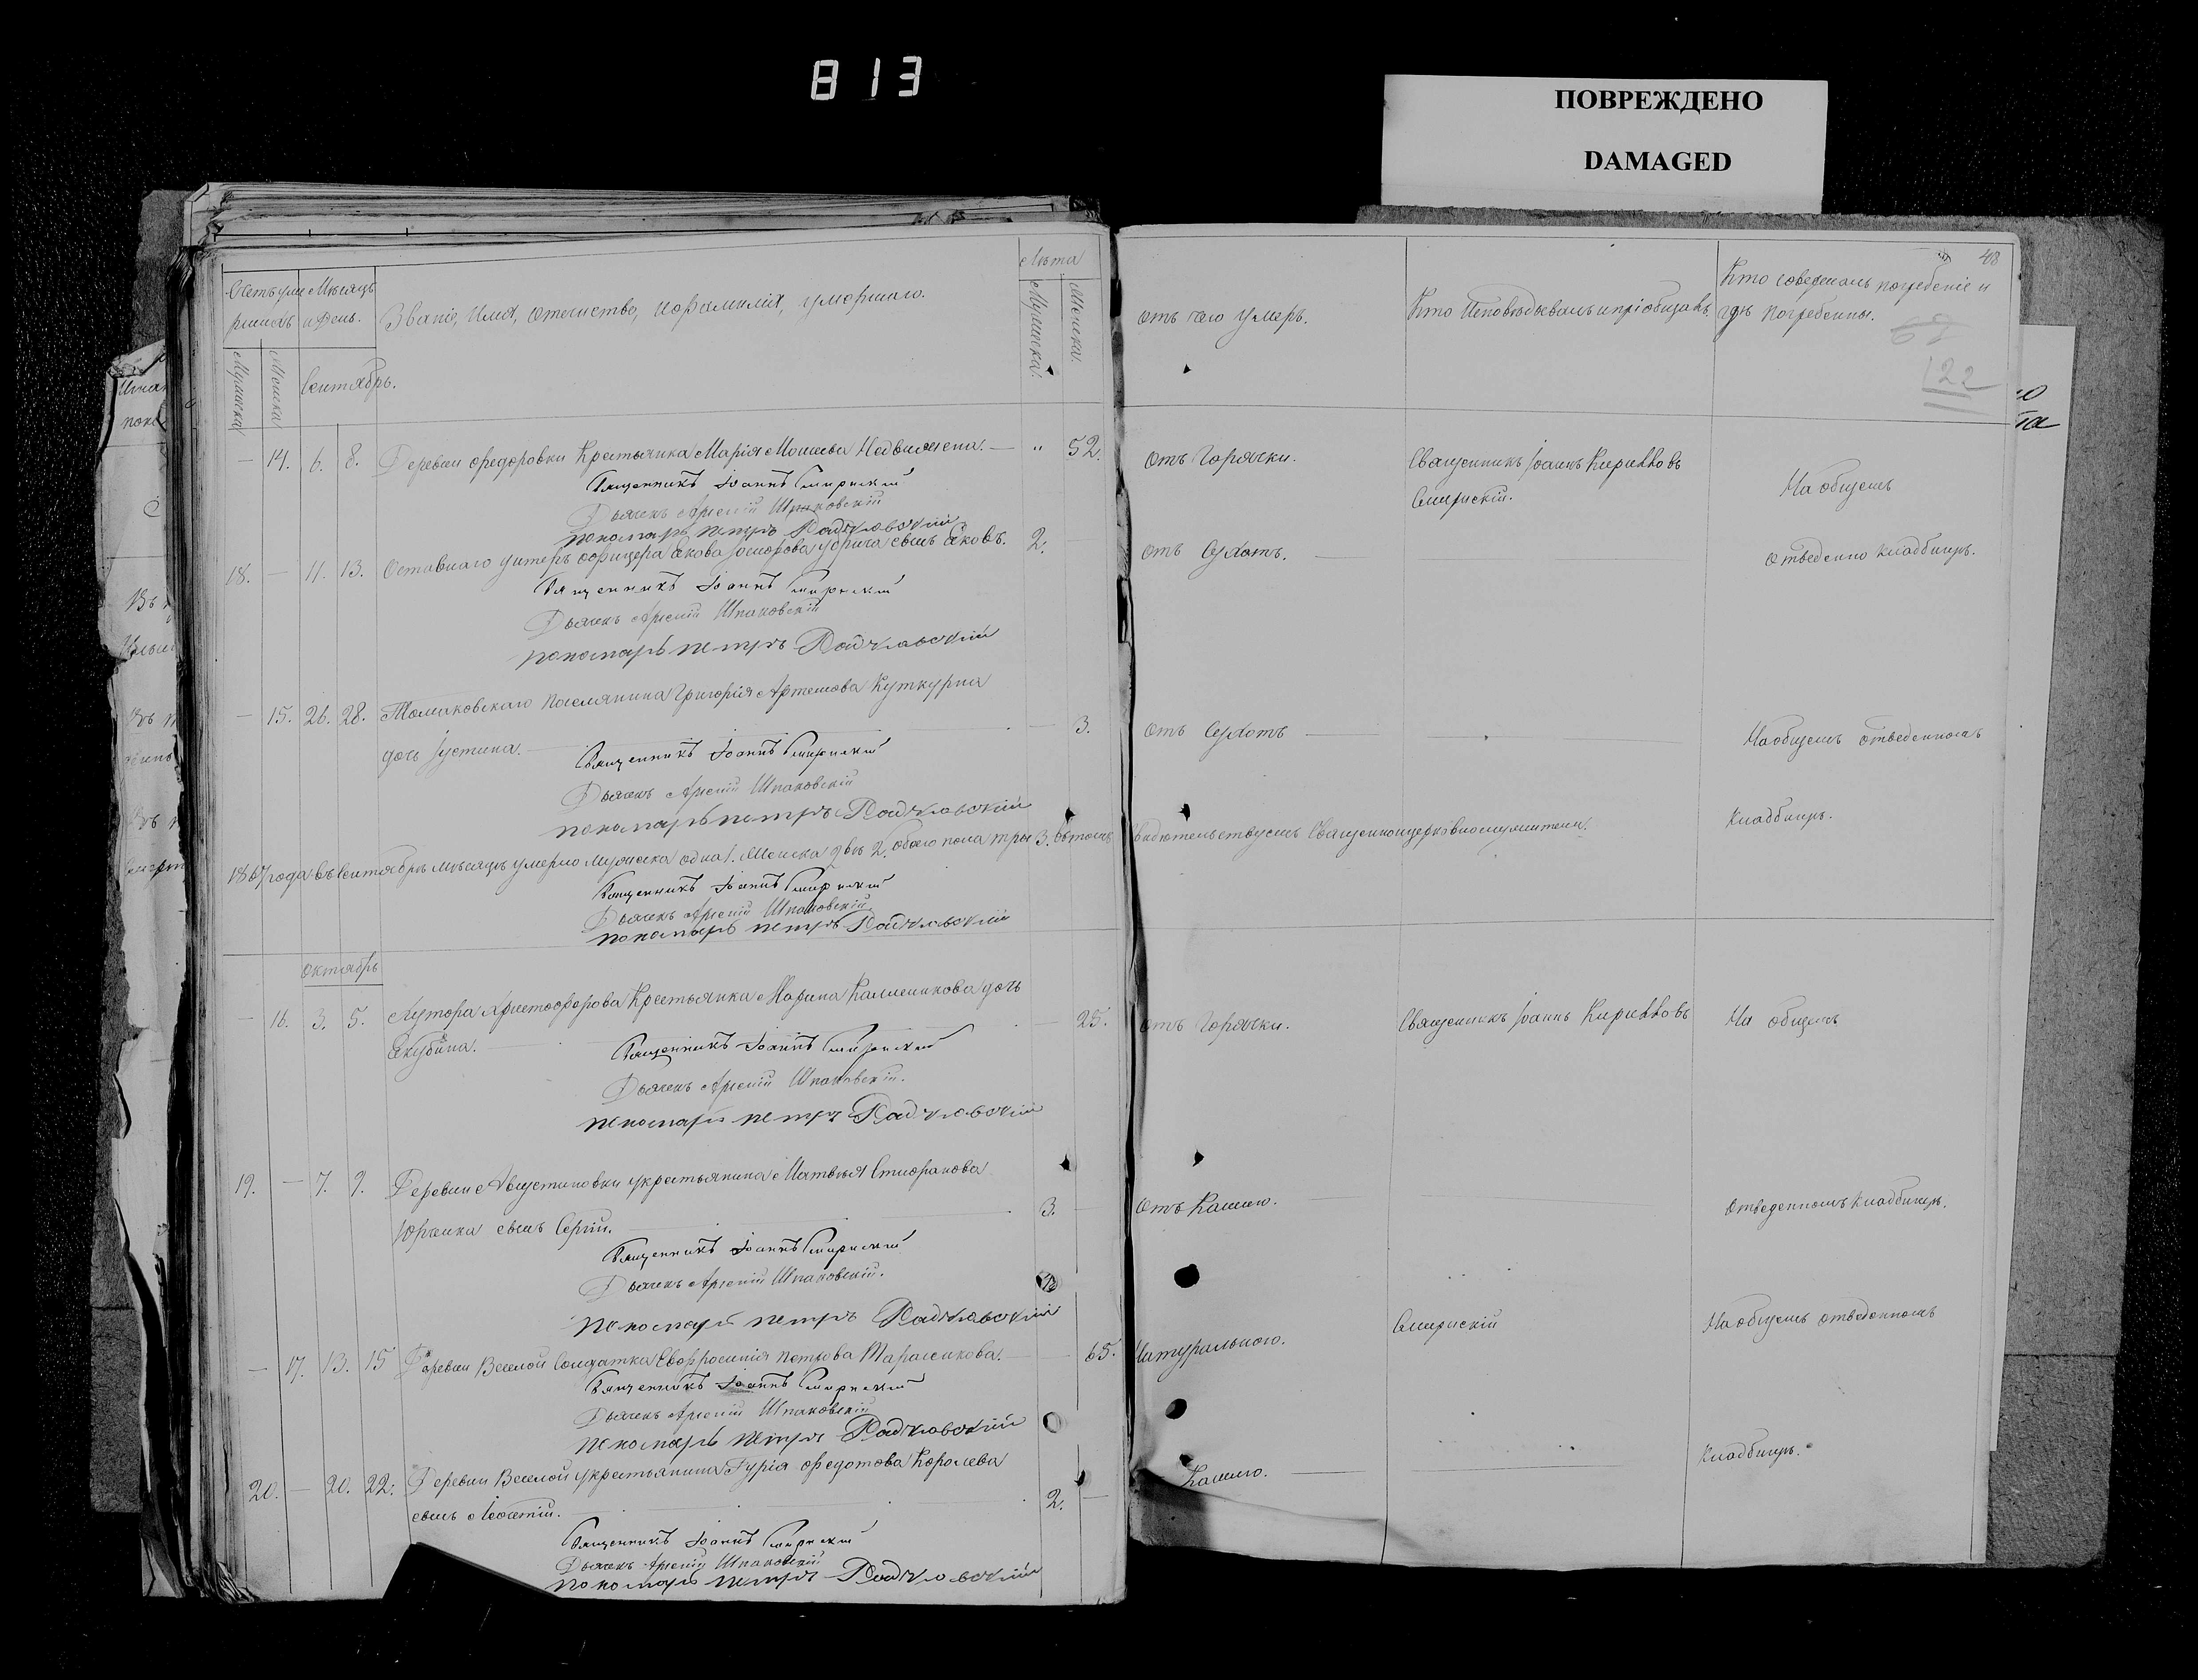 813
ПОВРЕЖДЕНО
DAMAGED
Счетъ уме
ршихъ
Мѣсяцъ
и день.
Званіе, Имя, отечиство, и фамилія, умершаго.
Лѣта
Мужеска.
Женска.
Мужеска
Женска
Сентябрь.
— 14. 6. 8. Деревни Федоровки Крестьянка Марія Моисеева — " 52.
Священникъ Іоаннъ Смирнскій
Дьячекъ Арсеній Шпаковскій
пономарь петръ
18. — 11. 13. Оставнаго унтеръ офицера Якова сынъ Яковъ. 2. —
Священникъ Іоаннъ Смирнскій
Дьячекъ Арсеній Шпаковскій
пономарь петръ
— 15. 26. 28. Томаковскаго поселянина Григорія Артемова
дочь Іустина. — 3.
Священникъ Іоаннъ Смирнскій
Дьячекъ Арсеній Шпаковскій
пономарь петръ
1867 года въ Сентябрѣ мѣсяцѣ умерло Мужеска одна 1. Женска двѣ 2. обоего пола три 3. въ томъ свидѣтельствуемъ Священноцерковнослужители.
Священникъ Іоаннъ Смирнскій
Дьячекъ Арсеній Шпаковскій
пономарь петръ
Октябрь
— 16. 3. 5. Хутора Христофорова Крестьянка Марина Каллиникова дочь
— 25.
Священникъ Іоаннъ Смирнскій
Дьячекъ Арсеній Шпаковскій.
пономарь петръ
19. — 7. 9. Деревни Августиновки крестьянина Матвѣя Стефанова
сынъ Сергій. 3. —
Священникъ Іоаннъ Смирнскій
Дьячекъ Арсеній Шпаковскій.
пономарь петръ
— 17. 13. 15 Деревни Веселой Солдатка Евфросинія Петрова Тарасенкова. — 65.
Священникъ Іоаннъ Смирнскій
Дьячекъ Арсеній Шпаковскій
пономарь петръ
20. — 20. 22. Деревни Веселой крестьянина Гурія Федотова Королева
сынъ 2. —
Священникъ Іоаннъ Смирнскій
Дьячекъ Арсеній Шпаковскій
пономарь петръ
48
отъ чего умеръ.
Кто Исповѣдывалъ и пріобщалъ.
Кто совершалъ погребеніе и
гдѣ погребенны.
67
122
отъ горячки.
Священникъ Іоаннъ Кирилловъ
Смирнскій.
На общемъ
отъ Сухотъ.
отведенно кладбищѣ.
отъ Сухотъ
На общемъ отведенномъ
Кладбищѣ.
отъ горячки.
Священникъ Іоаннъ Кирилловъ
На общемъ
отъ Кашлю.
отведенномъ кладбищѣ.
Натуральною.
Смирнскій
На общемъ отведенномъ
Кашлю.
Кладбищѣ.